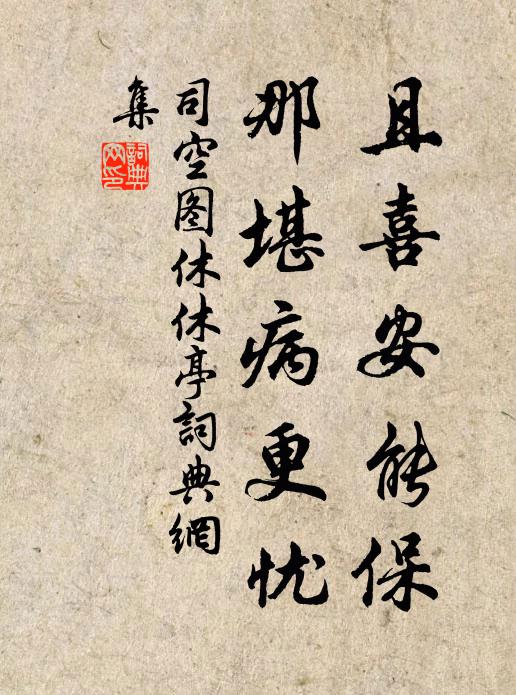 且喜安能保
那堪病更忧
司空图休休亭詞典網
集
詞典網印